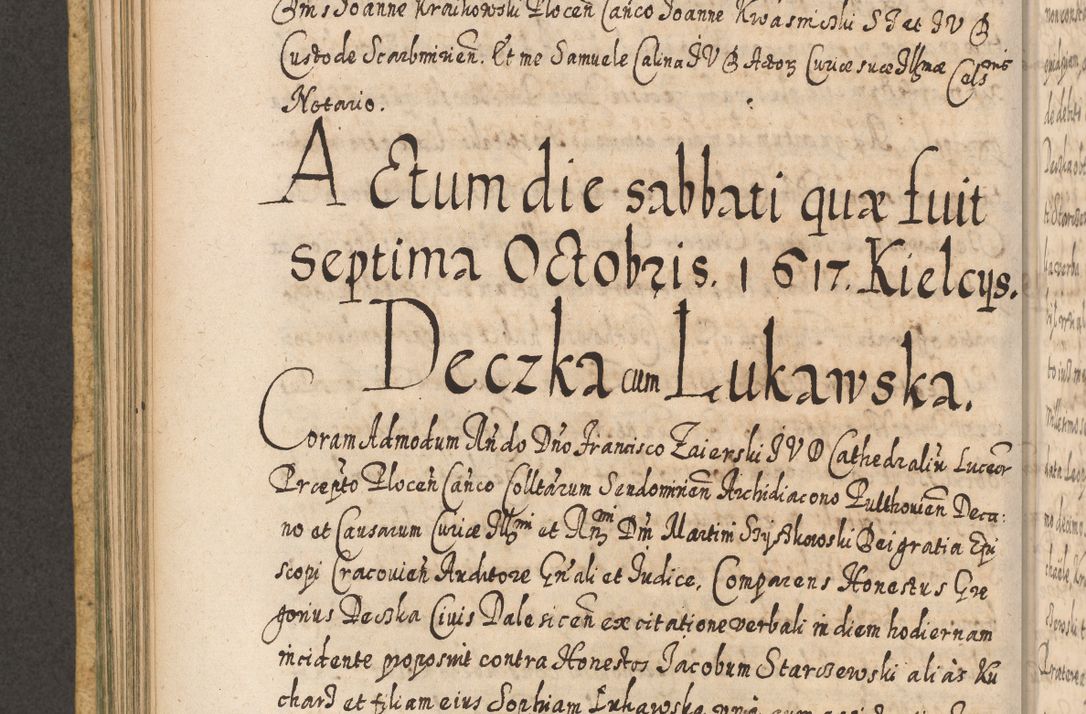 Joanne Kraikowski Plocen Canco Joanne Kwasniczki S T et J V
Custode Scarbimirien. Et me Samuele Calina J V Actor Curiæ suæ Illmæ Cels
Notario.
Actum die sabbati quæ fuit
septima Octobris. 1617. Kielcys.
Deczka cum Lukawska.
Coram Admodum Rndo Dno Francisco Zaierski J V D Cathedraliu Luceor
Præpto Plocen Canco Colltarum Sendomirien Archidiacono Pulthouien Deca:
no et Causarum Curiæ Illmi et Rmi Dni Martini Szyszkowski Dei gratia Epi
scopi Cracouien Auditore Gnali et Judice, Comparens Honestus Gre
gorius Deczka Ciuis Dalesicen ex citatione verbali in diem hodiernam
incidente proposuit contra Honestos Jacobum Starczewski aliàs Ku
chard et filiam eius Sophiam Lukawska